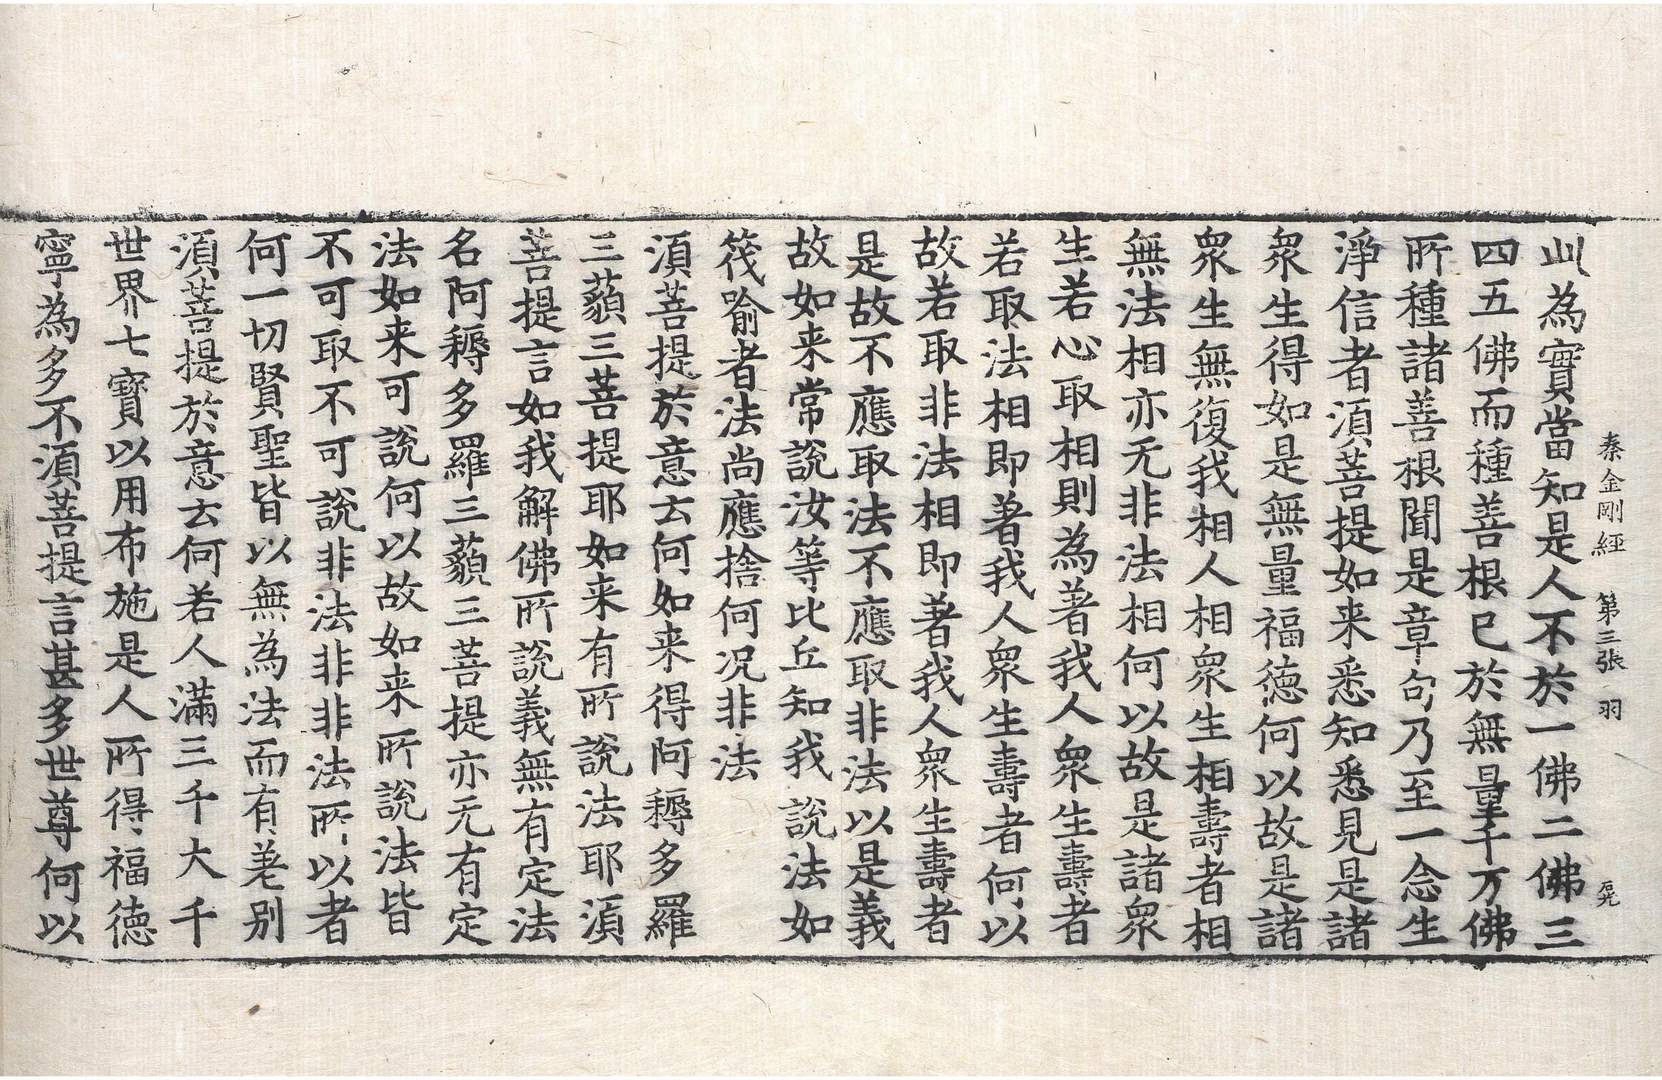 此為實當知是人不於一佛二佛三
秦金剛經 第三張 羽
四五佛而種善根已於無量千万佛
所種諸善根聞是章句乃至一念生
淨信者湏菩提如来悉知悉見是諸
衆生得如是無量福德何以故是諸
衆生無復我相人相衆生相壽者相
無法相亦无非法相何以故是諸衆
生若心取相則為著我人衆生壽者
若取法相即著我人衆生壽者何以
故若取非法相即著我人衆生壽者
是故不應取法不應取非法以是義
故如来常說汝等比丘知我說法如
筏喻者法尚應捨何况非法
湏菩提於意云何如来得阿耨多羅
三藐三菩提耶如来有所說法耶湏
菩提言如我解佛所說義無有定法
名阿耨多羅三藐三菩提亦无有定
法如来可說何以故如来所說法皆
不可取不可說非法非非法所以者
何一切賢聖皆以無為法而有差别
湏菩提於意云何若人滿三千大千
世界七寳以用布施是人所得福德
寧為多不湏菩提言甚多世尊何以